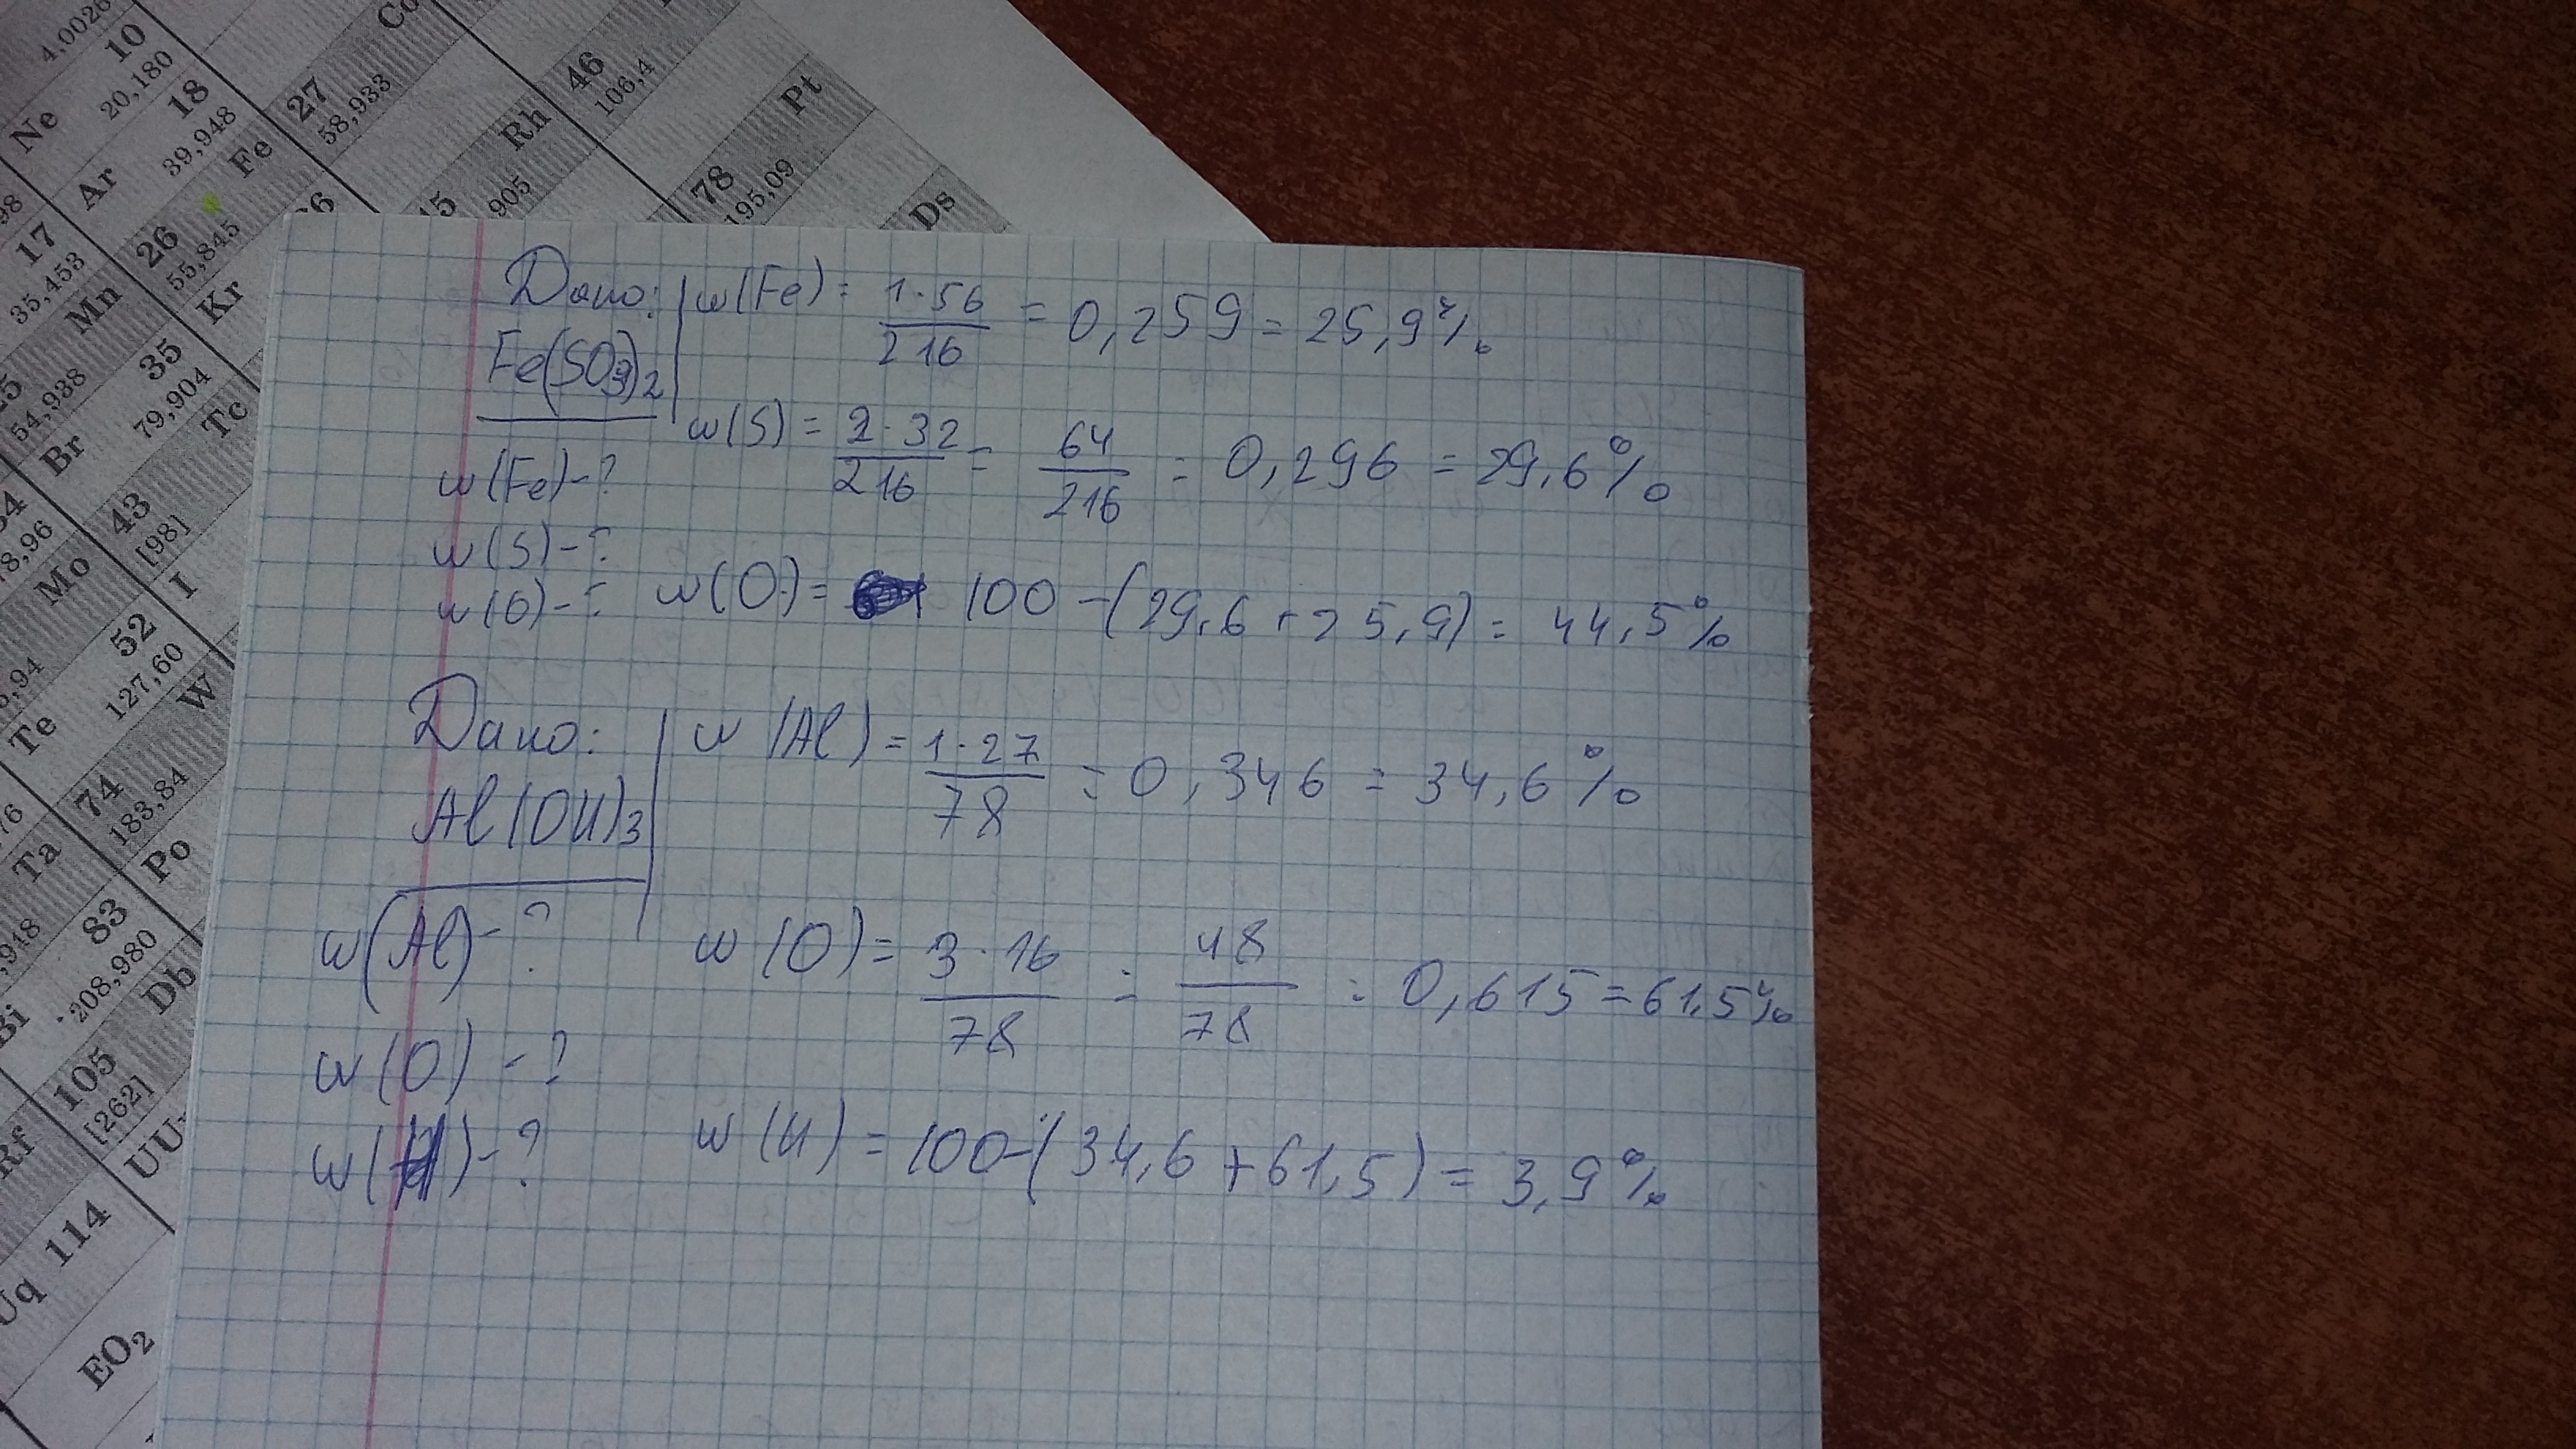 4,0026
10
Ne
20,180
18
Ar
39,948
27
Co
58,933
26
Fe
55,845
17
35,453
Mn
54,938
Kr
35
Br
79,904
Tc
43
[98]
Rh
905
46
106,4
78
Pt
195,09
Ds
Mo
I
52
Te
127,60
W
74
183,84
Ta
Po
83
208,980
Db
105
[262]
Rf
114
Uq
EO₂
Дано:
Fe(SO3)2
w(Fe)-?
w(S)-?
w(O)-?
w(Fe) = 1·56/216 = 0,259 = 25,9%
w(S) = 2·32/216 = 64/216 = 0,296 = 29,6%
w(O) = 100 - (29,6 + 25,9) = 44,5%
Дано:
Al(OH)3
w(Al)-?
w(O)-?
w(H)-?
w(Al) = 1·27/78 = 0,346 = 34,6%
w(O) = 3·16/78 = 48/78 = 0,615 = 61,5%
w(H) = 100 - (34,6 + 61,5) = 3,9%